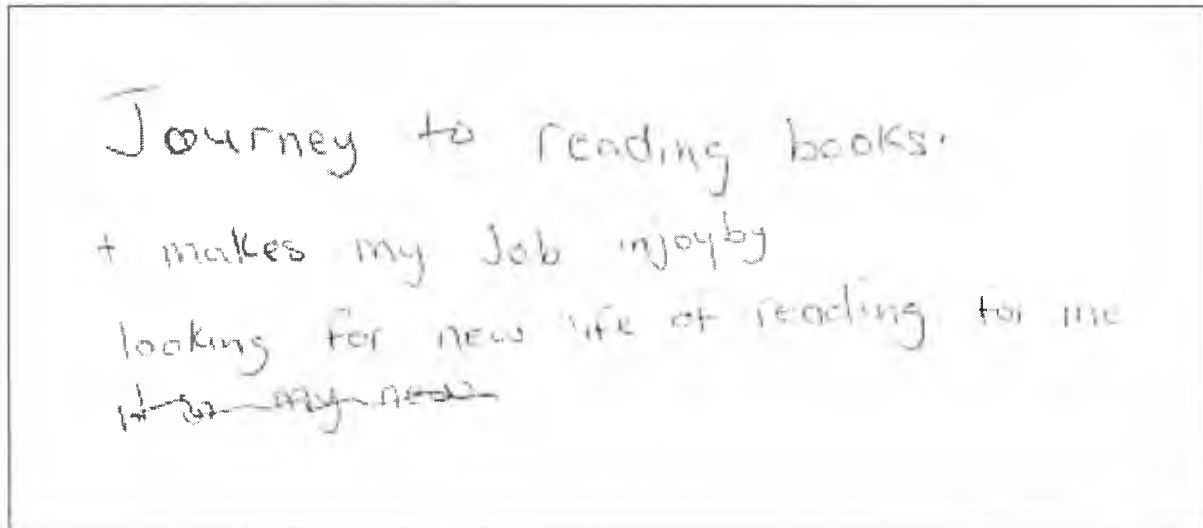 Journey to reading books.
+ makes my Job injoyby
looking for new life of reading for me
my